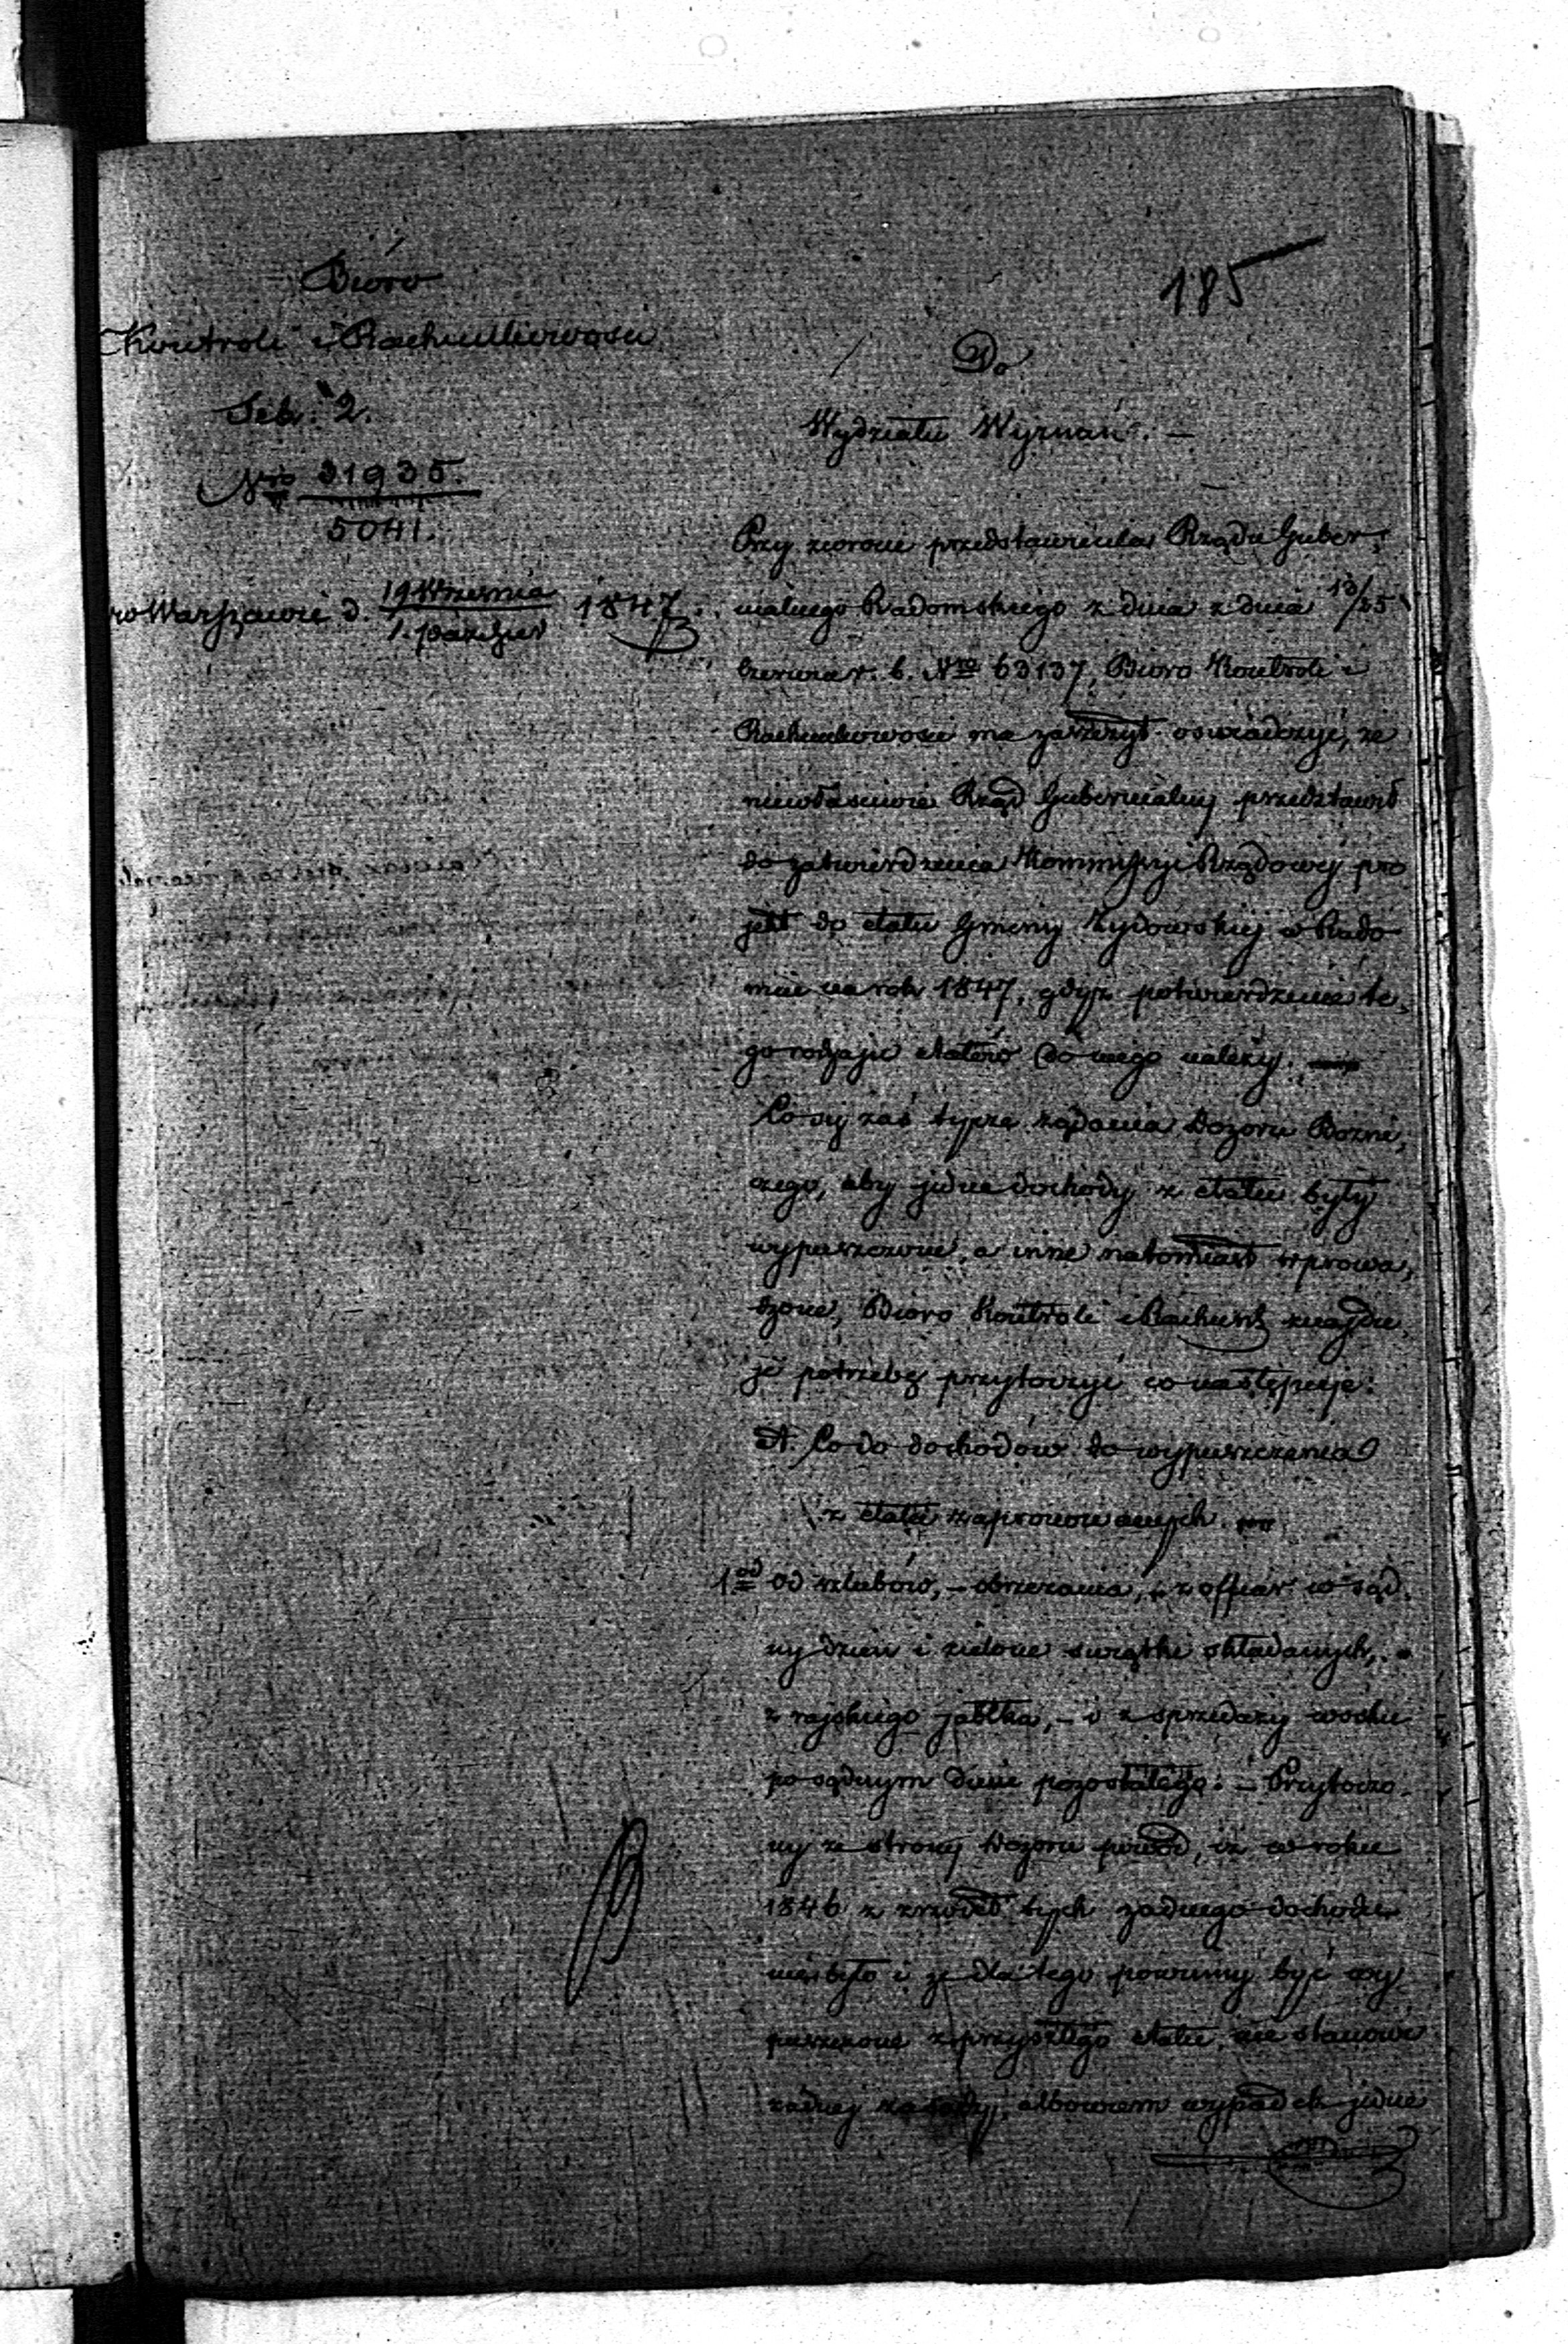 185
Bióro
Kontroli i Rachunkowości
Sek: 2.
Nro 31935.
5041.
w Warszawie d. 19 Września / 1. Paździer 1847.
Do
Wydziału Wyznań. —
Przy zwrocie przedstawienia Rządu Guber,
nialnego Radomskiego z dnia z dnia 13/25
Czerwca r. b. Nro 63137, Bióro Kontroli i
Rachunkowości ma zaszczyt oswiadczyć, że
niewłaściwie Rząd Gubernialny przedstawił
do zatwierdzenia Kommissyi Rządowej pro
jekt do etatu Gminy Żydowskiej w Rado
miu na rok 1847, gdyż potwierdzenie te,
go rodzaju etatów do niego należy. —
Co się zaś tycze żądania Dozoru Bożni,
czego, aby jedne dochody z etatu były
wypuszczone, a inne natomiast wprowa,
dzone, Bióro Kontroli i Rachunk znajdu,
je potrzebę przytoczyć co następuje:
A. Co do dochodów do wypuszczenia
z etatu zaprojektowanych. —
1od od szlubów, – obrzezania, – z offiar w sąd,
ny dzień i zielone świątki składanych, –
z rajskiego jabłka, – i z sprzedaży wosku
po sądnym dniu pozostałego: – Przytoczo,
ny ze strony Dozoru powód, iż w roku
1846 z źrzódeł tych żadnego dochodu
nie było i że dla tego powinny być wy,
puszczone z przyszłego etatu, nie stanowi
żadnej zasady, albowiem wypadek jedne